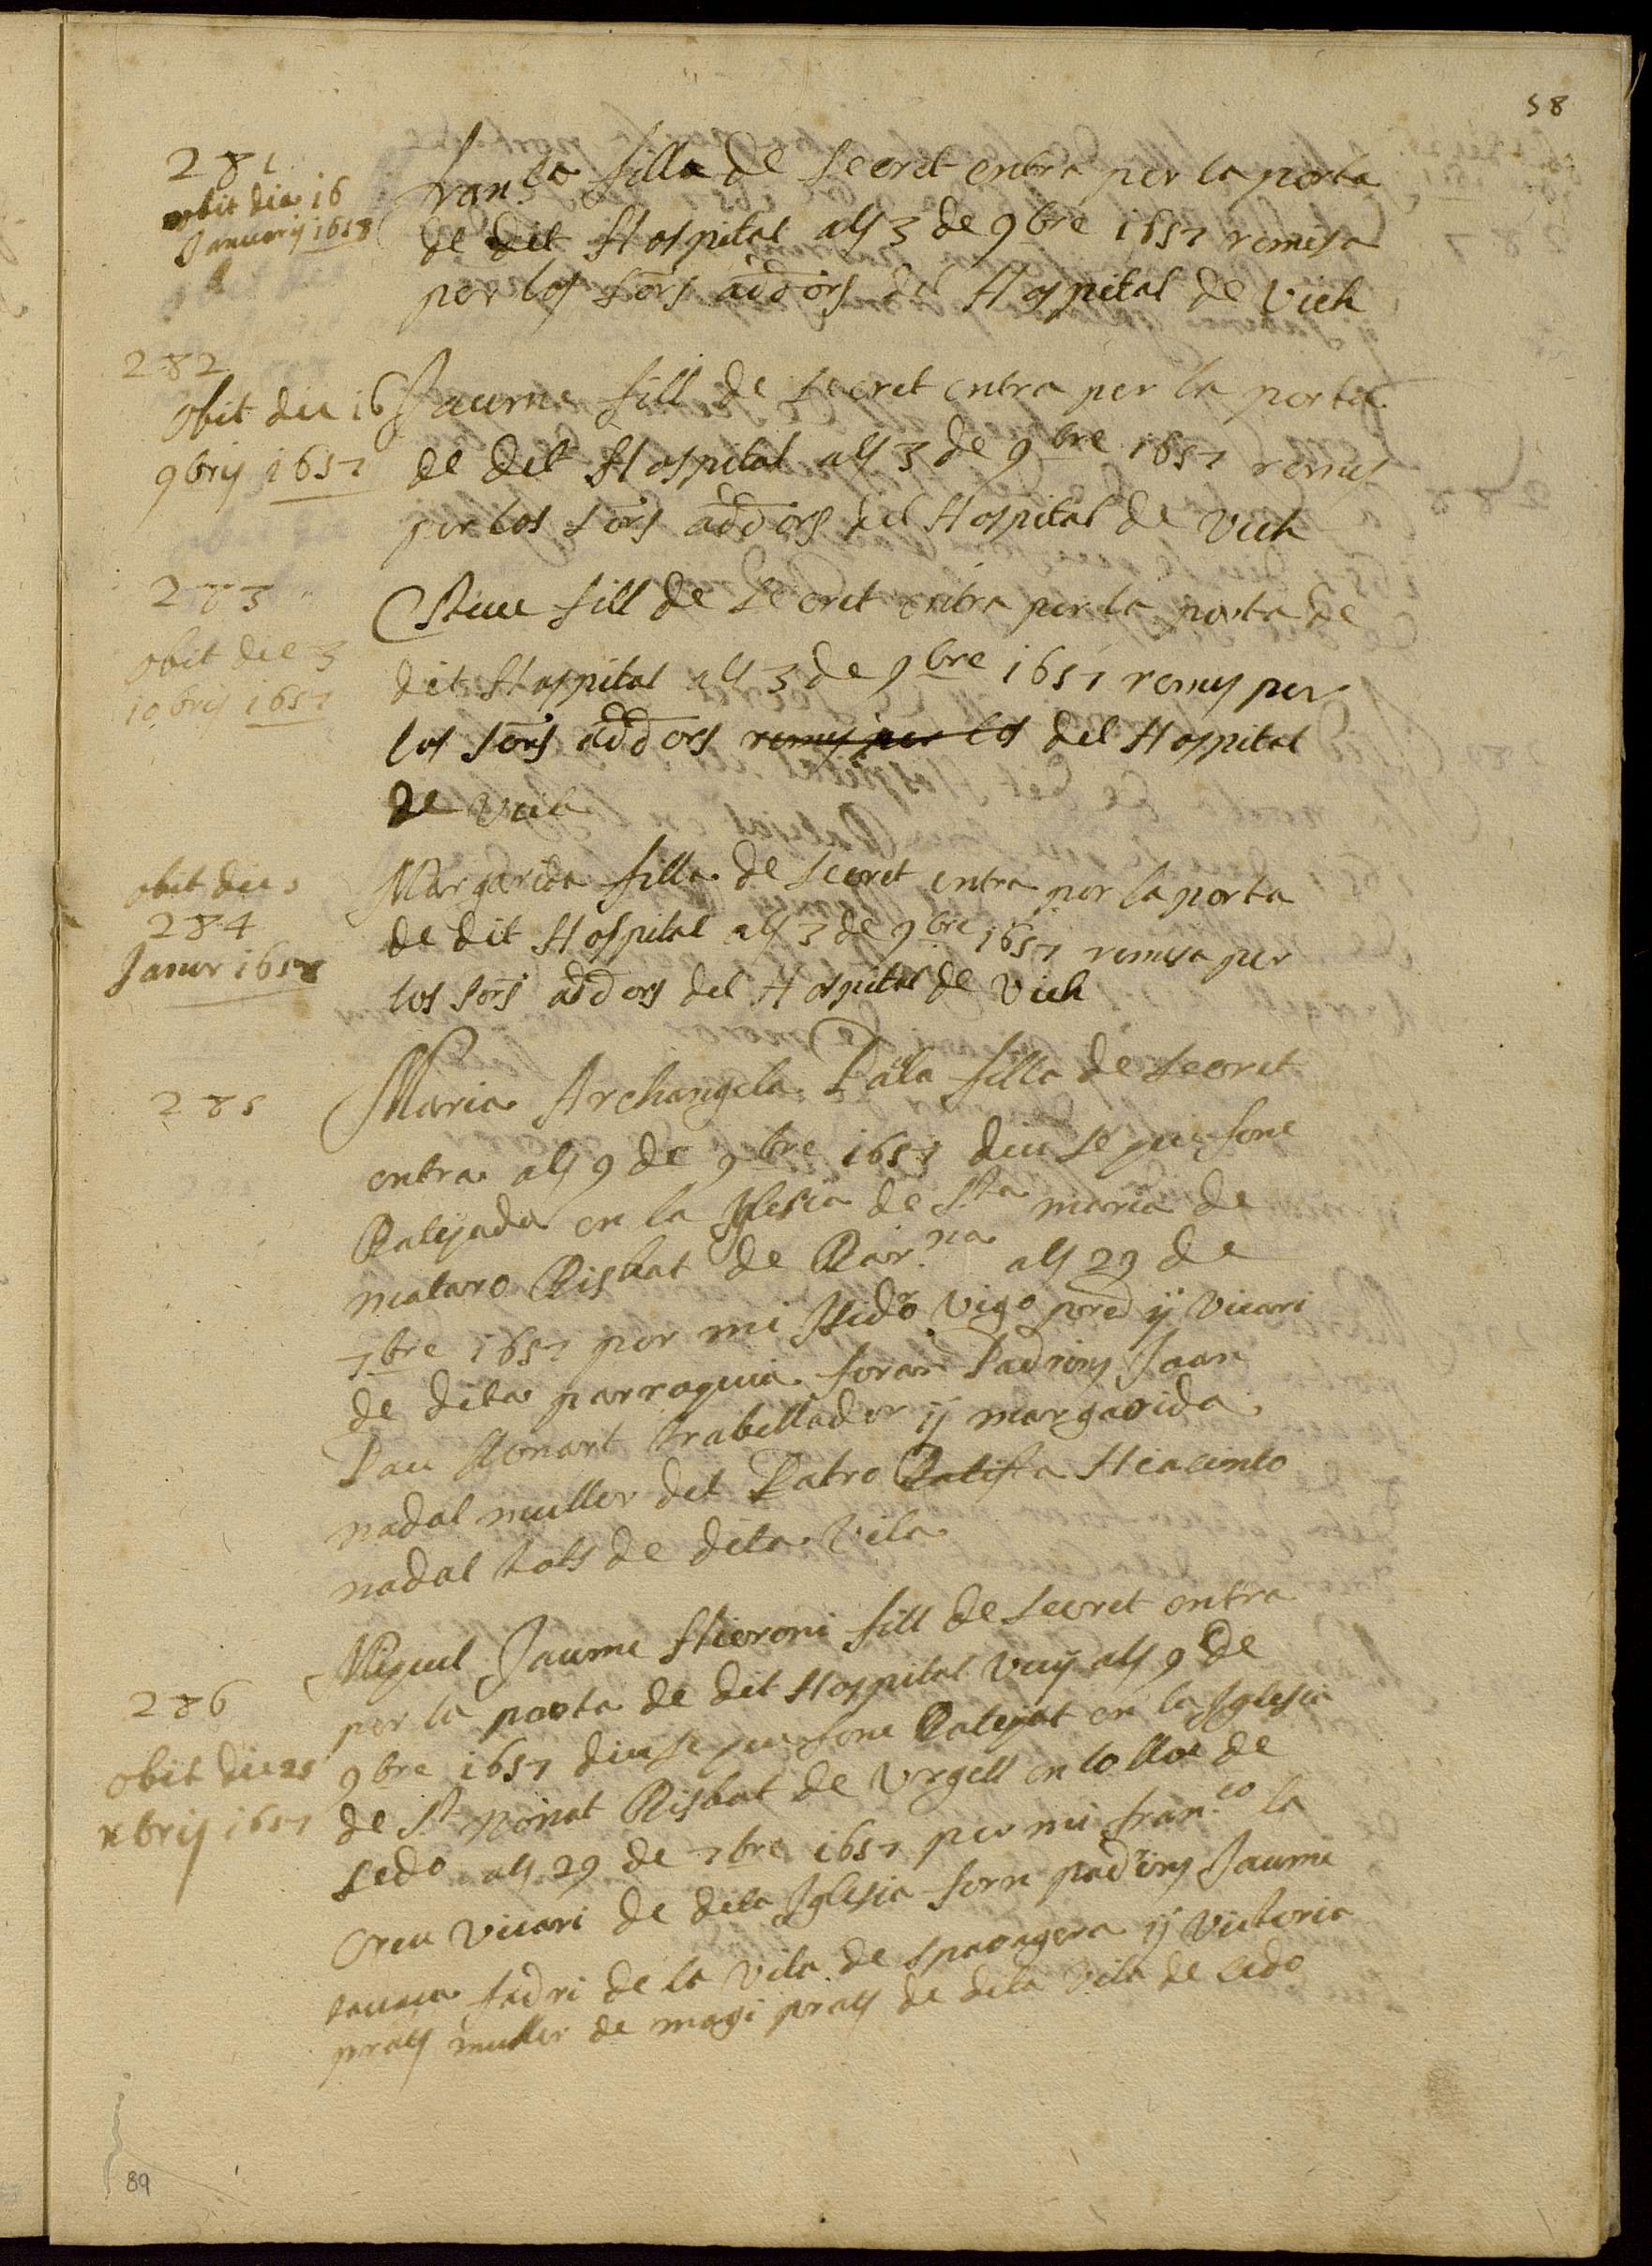 58
281
obit dia 16
Januarij 1658
Fran.ca filla de Secret entra per la porta
de dit Hospital als 3 de 9bre 1657 remesa
per los Sors addors del Hospital de Vich
282
obit die 16
9brij 1657
Jaume fill de Secret entra per la porta
de dit Hospital als 3 de 9bre 1657 remes
per los Sors addors del Hospital de Vich
283
obit die 3
10bris 1657
Steue fill de Secret entra per la porta de
dit Hospital als 3 de 9bre 1657 remes per
los Sors addors remes per los del Hospital
de Vich
obit die 5
284
Janer 1658
Margarida filla de Secret entra per la porta
de dit Hospital als 3 de 9bre 1657 remesa per
los Sors addors del Hospital de Vich
285
Maria Archangela Pala filla de Secret
entra als 9 de 9bre 1657 diu se que fonc
Batejada en la Iglesia de Sta maria de
mataro Bisbat de Bar.na als 29 de
7bre 1657 per mi Isidro Vigo pred y Vicari
de dita parroquia foran Padrins Joan
Pau Bonart trabellador y margarida
nadal muller del Patro Batista Hiacinto
nadal tots de dita Vila
286
obit die 25
xbrij 1657
Miquel Jaume Hieroni fill de Secret entra
per la porta de dit Hospital Vuy als 9 de
9bre 1657 diu se que fonc Batejat en la Iglesia
de St Bisbat de Vrgell en lo lloc de
Ledo als 29 de 7bre 1657 per mi fran.co la
Creu Vicari de dita Iglesia foren padrins Jaume
fadri de la Vila de sparagera y Victoria
prats muller de magi prats de dita Vila de Ledo
89